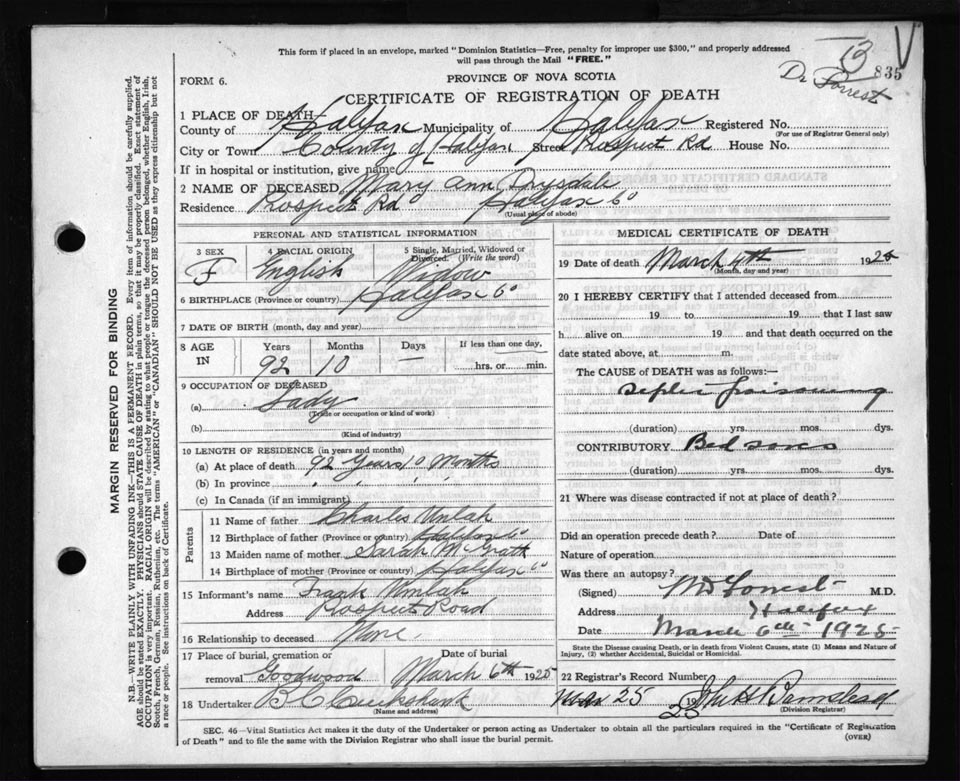 This form if placed in an envelope, marked "Dominion Statistics—Free, penalty for improper use $300," and properly addressed
will pass through the Mail "FREE."
13
835
Dr Forrest
FORM 6.
PROVINCE OF NOVA SCOTIA
CERTIFICATE OF REGISTRATION OF DEATH
1 PLACE OF DEATH
County of Halifax Municipality of Halifax Registered No.
(For use of Registrar General only)
City or Town County of Halifax Street Prospect Rd House No.
If in hospital or institution, give name
2 NAME OF DECEASED Mary Ann Drysdale
Residence Prospect Rd Halifax Co
(Usual place of abode)
PERSONAL AND STATISTICAL INFORMATION
3 SEX 4 RACIAL ORIGIN 5 Single, Married, Widowed or Divorced. (Write the word)
F English Widow
6 BIRTHPLACE (Province or country) Halifax Co
7 DATE OF BIRTH (month, day and year)
8 AGE IN Years Months Days If less than one day,
92 10 — hrs. or min.
9 OCCUPATION OF DECEASED
(a) Lady
(Trade or occupation or kind of work)
(b)
(Kind of industry)
10 LENGTH OF RESIDENCE (in years and months)
(a) At place of death 92 Years 10 Months
(b) In province " " " "
(c) In Canada (if an immigrant)
Parents
11 Name of father Charles Umlah
12 Birthplace of father (Province or country) Halifax Co
13 Maiden name of mother Sarah McGrath
14 Birthplace of mother (Province or country) Halifax Co
15 Informant's name Frank Umlah
Address Prospect Road
16 Relationship to deceased None
17 Place of burial, cremation or removal Goodwood Date of burial March 6th 1925
18 Undertaker
(Name and address)
MEDICAL CERTIFICATE OF DEATH
19 Date of death March 4th 1925
(Month, day and year)
20 I HEREBY CERTIFY that I attended deceased from
19 to 19 that I last saw
h alive on 19 and that death occurred on the
date stated above, at m.
The CAUSE OF DEATH was as follows:—
(duration) yrs. mos. dys.
CONTRIBUTORY Bed sores
(duration) yrs. mos. dys.
21 Where was disease contracted if not at place of death?
Did an operation precede death? Date of
Nature of operation
Was there an autopsy?
(Signed) Forrest M.D.
Address Halifax
Date March 6th 1925
State the Disease causing Death, or in Death from Violent Causes, state (1) Means and Nature of
Injury, (2) whether Accidental, Suicidal or Homicidal.
22 Registrar's Record Number
Mar 25
25
(Division Registrar)
SEC. 46—Vital Statistics Act makes it the duty of the Undertaker or person acting as Undertaker to obtain all the particulars required in the "Certificate of Registration
of Death" and to file the same with the Division Registrar who shall issue the burial permit.
(OVER)
MARGIN RESERVED FOR BINDING
N.B.—WRITE PLAINLY WITH UNFADING INK—THIS IS A PERMANENT RECORD. Every item of information should be carefully supplied.
AGE should be stated EXACTLY. PHYSICIANS should STATE CAUSE OF DEATH in plain terms, so that it may be properly classified. Exact statement of
OCCUPATION is very important. RACIAL ORIGIN will be described by stating to what people or tongue the deceased person belonged, whether English, Irish,
Scotch, French, German, Russian, Ruthenian, etc. The terms "AMERICAN" or "CANADIAN" SHOULD NOT BE USED as they express citizenship but not
a race or people. See instructions on back of Certificate.